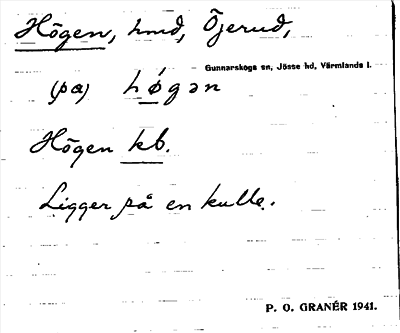 Högen, hmd, Öjerud,
Gunnarskogs sn, Jösse hd, Värmlands l.
(på) hǿgən
Högen kb.
Ligger på en kulle.
P. O. GRANÉR 1941.